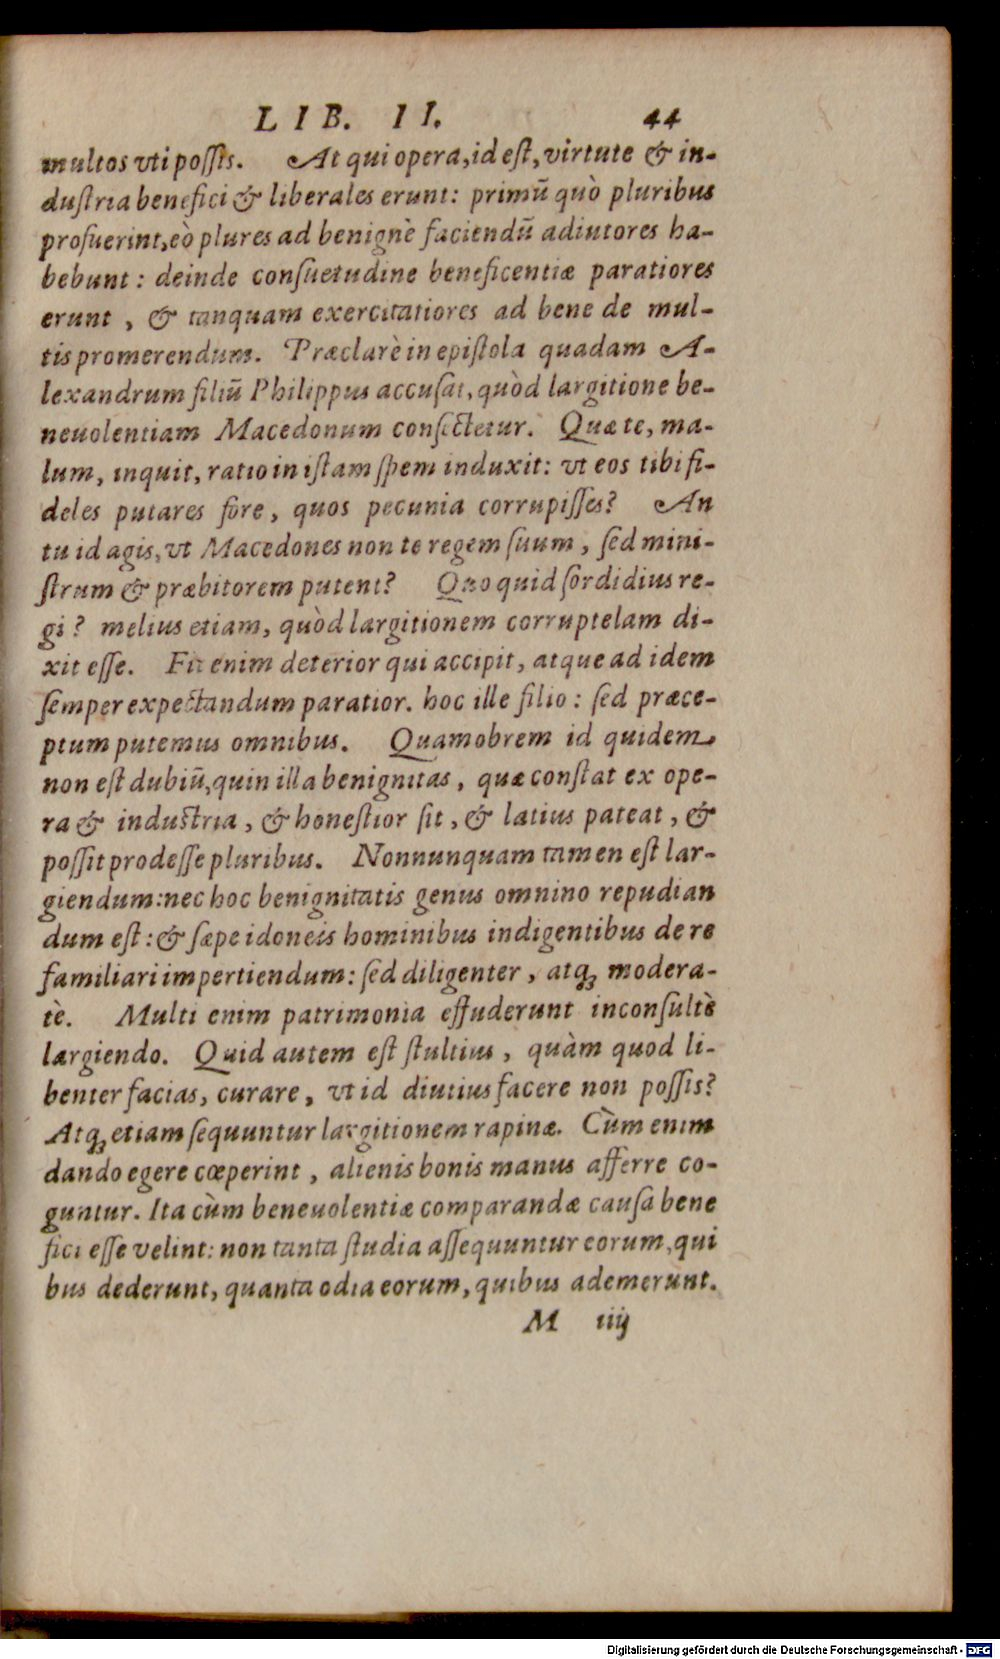 LIB. II. 44
multos vti possis. At qui opera, id est, virtute & in-
dustria benefici & liberales erunt: primũ quò pluribus
profuerint, eò plures ad benignè faciendũ adiutores ha-
bebunt: deinde consuetudine beneficentiæ paratiores
erunt, & tanquam exercitatiores ad bene de mul-
tis promerendum. Præclarè in epistola quadam A-
lexandrum filiũ Philippus accusat, quòd largitione be-
neuolentiam Macedonum consectetur. Quæ te, ma-
lum, inquit, ratio in istam spem induxit: vt eos tibi fi-
deles putares fore, quos pecunia corrupisses? An
tu id agis, vt Macedones non te regem suum, sed mini-
strum & præbitorem putent? Quo quid sordidius re-
gi? melius etiam, quòd largitionem corruptelam di-
xit esse. Fit enim deterior qui accipit, atque ad idem
semper expectandum paratior. hoc ille filio: sed præce-
ptum putemus omnibus. Quamobrem id quidem
non est dubiũ, quin illa benignitas, quæ constat ex ope-
ra & industria, & honestior sit, & latius pateat, &
possit prodesse pluribus. Nonnunquam tamen est lar-
giendum: nec hoc benignitatis genus omnino repudian
dum est: & sæpe idoneis hominibus indigentibus de re
familiari impertiendum: sed diligenter, atq; modera-
tè. Multi enim patrimonia effuderunt inconsultè
largiendo. Quid autem est stultius, quàm quod li-
benter facias, curare, vt id diutius facere non possis?
Atq; etiam sequuntur largitionem rapinæ. Cùm enim
dando egere cœperint, alienis bonis manus afferre co-
guntur. Ita cùm beneuolentiæ comparandæ causa bene
fici esse velint: non tanta studia assequuntur eorum, qui
bus dederunt, quanta odia eorum, quibus ademerunt.
M iiij
Digitalisierung gefördert durch die Deutsche Forschungsgemeinschaft - DFG